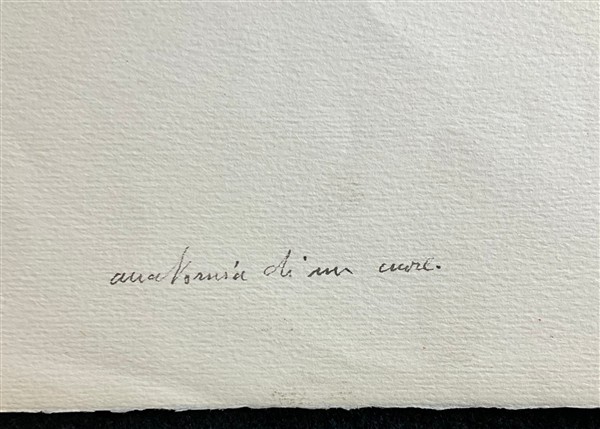 anatomia di un cuore.